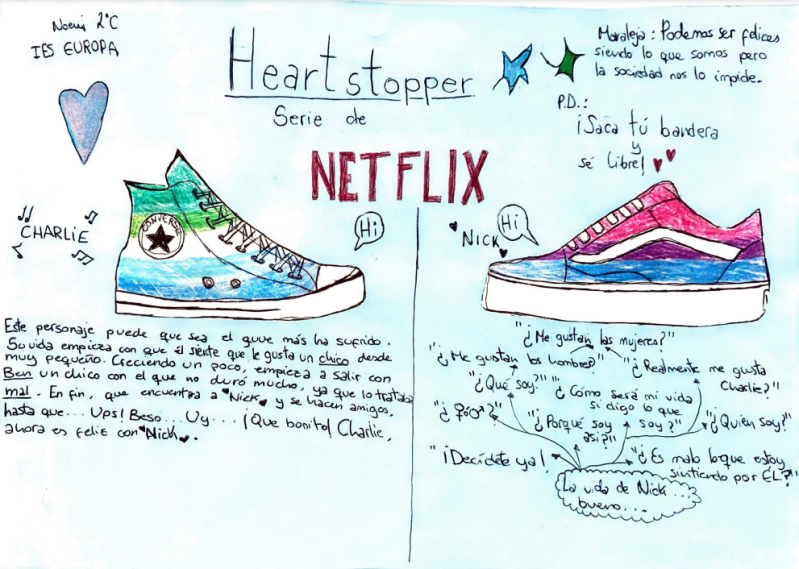 Noemi 2°C
IES EUROPA
Heartstopper
Serie de
NETFLIX
Moraleja: Podemos ser felices
siendo lo que somos pero
la sociedad nos lo impide.
P.D.:
¡Saca tú bandera
y
sé libre!
CHARLIE
CONVERSE
Hi
Este personaje puede que sea el que más ha sufrido.
Su vida empieza con que él siente que le gusta un chico desde
muy pequeño. Creciendo un poco, empieza a salir con
Ben un chico con el que no duró mucho, ya que lo trataba
mal. En fin, que encuentra a "Nick" y se hacen amigos,
hasta que... Ups! Beso... Uy.... ¡Que bonito! Charlie,
ahora es feliz con Nick.
NICK
Hi
"¿Me gustan las mujeres?"
"¿Me gustan los hombres?"
"¿Realmente me gusta
Charlie?"
"¿Qué soy?"
"¿Cómo será mi vida
si digo lo que
soy?"
"¿♀ó♂?"
"¿Porqué soy
así?"
"¿Quien soy?"
"¡Decídete ya!
"¿Es malo lo que estoy
sintiendo por ÉL?"
La vida de Nick...
bueno...